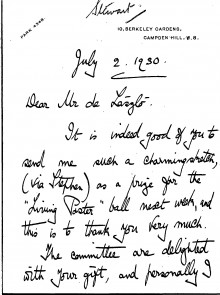 Stewart
PARK 4348.
10, BERKELEY GARDENS,
CAMPDEN HILL, W.8.
July 2. 1930.
Dear Mr de László.
It is indeed good of you to
send me such a charming sketch,
(via Stephen) as a prize for the
"Living Poster" ball next week, and
this is to thank you very much.
The committee are delighted
with your gift, and personally I